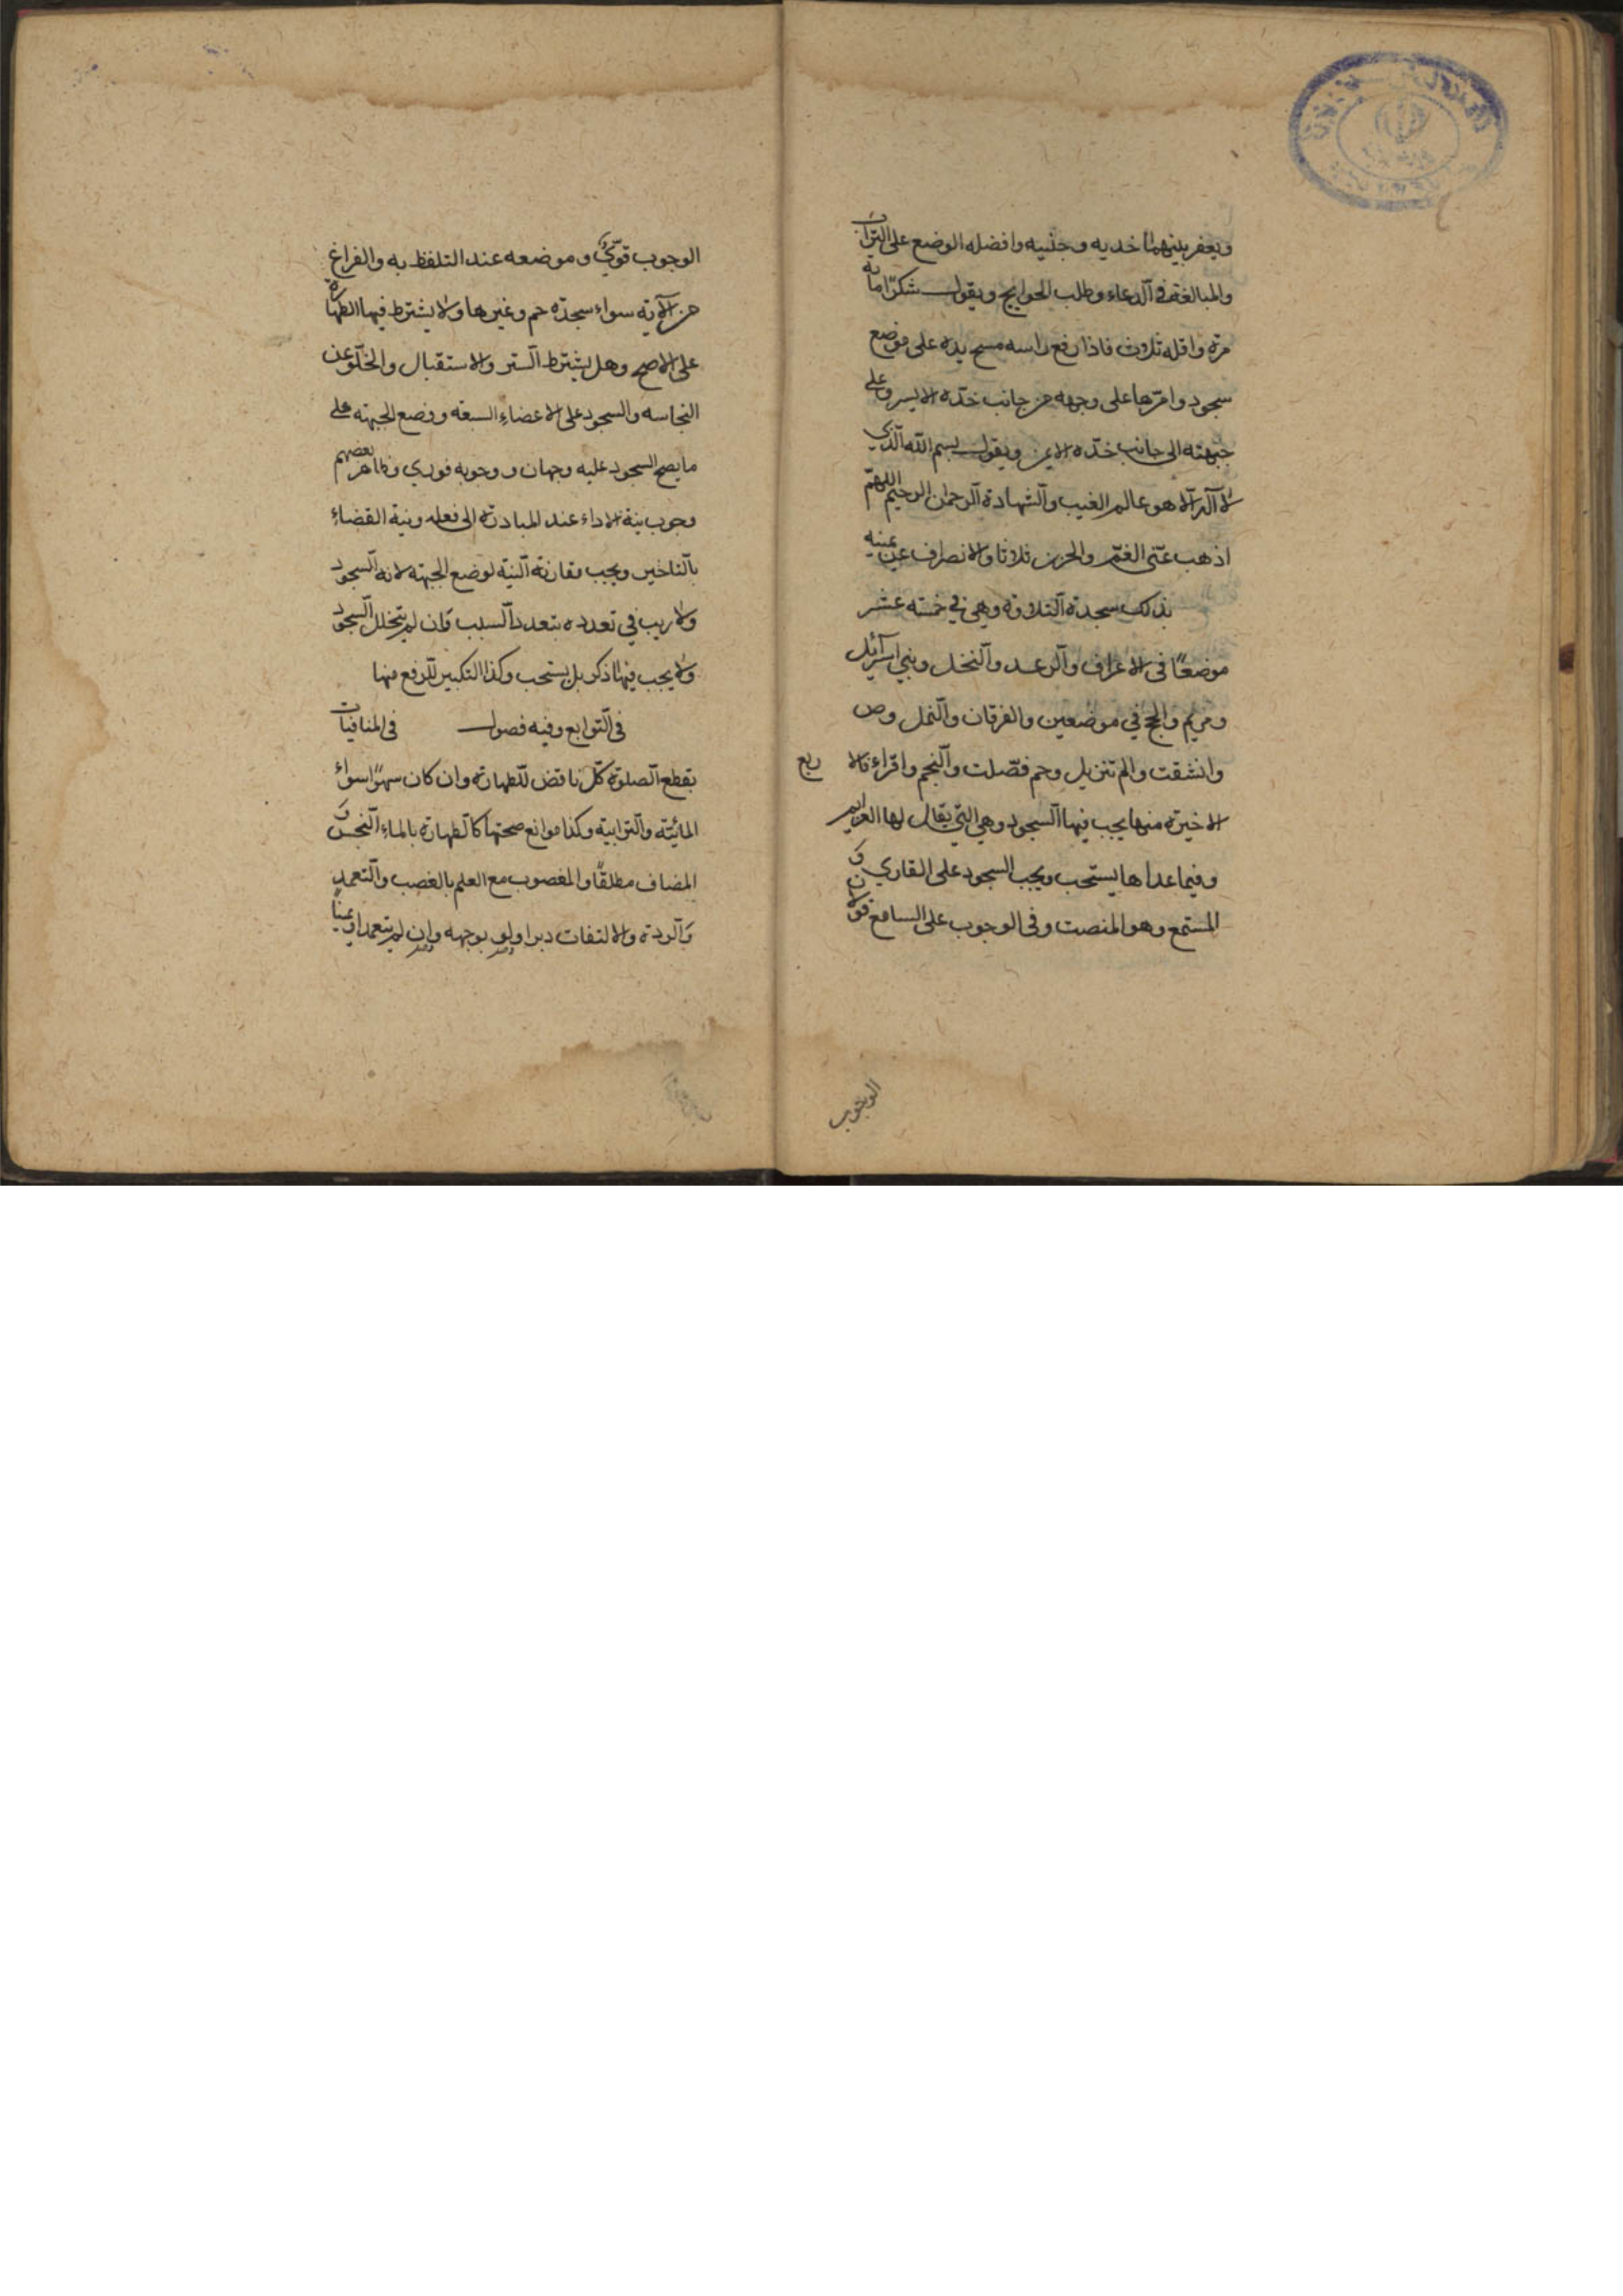 ويعفر بينهما خديه وجنبيه وافضله الوضع على التراب
والمبالغة في الدعاء وطلب الحوايج ويقول شكرا ماية
مرة واقله ثلاث فاذا رفع راسه مسح يده على موضع
سجوده وامرها على وجهه من جانب خده الايسر وعلى
جبهته الى جانب خده الايمن ويقول بسم الله الذي
لا اله الا هو عالم الغيب والشهادة الرحمان الرحيم اللهم
اذهب عني الغم والحزن ثلاثا والانصراف عن يمينه
بذلك سجدة التلاوة وهي في خمسة عشر
موضعًا في الاعراف والرعد والنخل وبني اسرآئيل
ومريم والحج في موضعين والفرقان والنمل وص
وانشقت والم تنزيل وحم فصّلت والنجم واقراء فالا
ربع
الاخيرة منها يجب فيها السجود وهي التي يقال لها العزايم
وفيما عداها يستحب ويجب السجود على القاري و
المستمع وهو المنصت وفي الوجوب على السامع قولان
الوجوب
الوجوب قويّ وموضعه عند التلفظ به والفراغ
من الآية سواء سجدة حم وغيرها ولا يشترط فيها الطهارة
على الاصح وهل يشترط الستر والاستقبال والخلو عن
النجاسه والسجود على الاعضاء السبعه ووضع الجبهة على
ما يصح السجود عليه وجهان ووجوبه فوري وظاهر بعضهم
وجوب نية الاداء عند المبادرة الى فعله ونية القضاء
بالتاخير ويجب مقارنة النية لوضع الجبهة لانه السجود
ولا ريب في تعدده بتعدد السبب فان لم يتخلل السجود
ولا يجب فيها ذكر بل يستحب وكذا التكبير للرفع منها
في التوابع وفيه فصول في المنافيات
يقطع الصلوة كل ناقض للطهارة وان كان سهوًا سواء
المائية والترابية وكذا موانع صحتها كالطهارة بالماء النجس و
المضاف مطلقًا والمغصوب مع العلم بالغصب والتعمد
والردة والالتفات دبرا ولو بوجهه وان لم يتعمد او يمينا